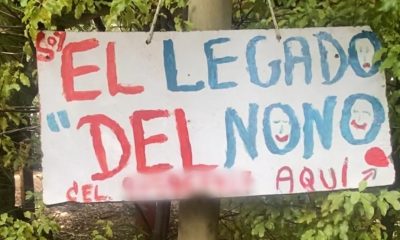 EL LEGADO
"DEL NONO
CEL. AQUÍ